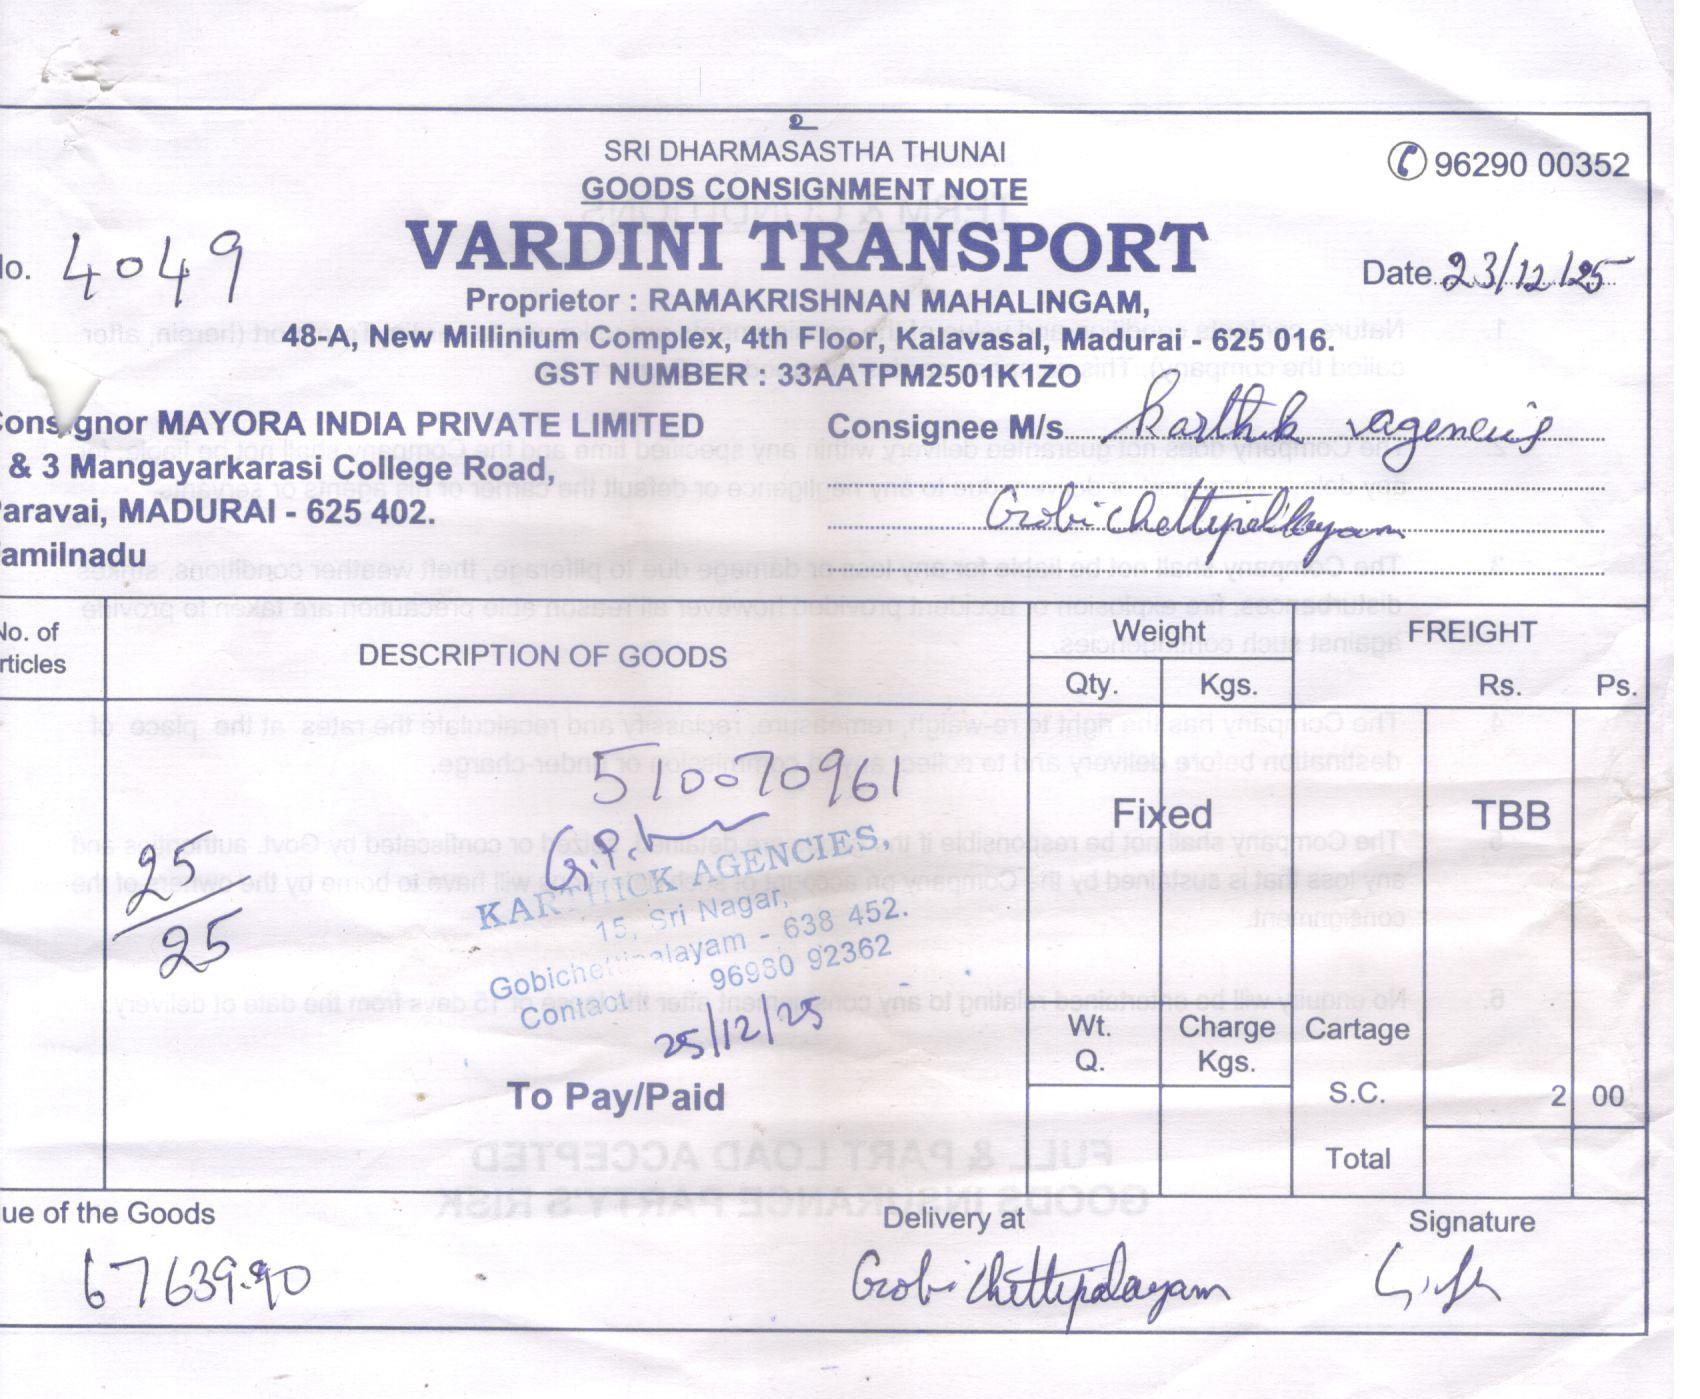 உ
SRI DHARMASASTHA THUNAI
GOODS CONSIGNMENT NOTE
96290 00352
VARDINI TRANSPORT
No. 4049
Date 23/12/25
Proprietor : RAMAKRISHNAN MAHALINGAM,
48-A, New Millinium Complex, 4th Floor, Kalavasal, Madurai - 625 016.
GST NUMBER : 33AATPM2501K1ZO
Consignor MAYORA INDIA PRIVATE LIMITED
& 3 Mangayarkarasi College Road,
Paravai, MADURAI - 625 402.
Tamilnadu
Consignee M/s. Karthik agencies
Gobichettipalayam
No. of
Articles
DESCRIPTION OF GOODS
Weight
Qty.
Kgs.
FREIGHT
Rs.
Ps.
25
25
510070961
KARTHICK AGENCIES,
15, Sri Nagar,
Gobichettipalayam - 638 452.
Contact 96980 92362
25/12/25
To Pay/Paid
Fixed
TBB
Wt.
Q.
Charge
Kgs.
Cartage
S.C.
2 00
Total
ue of the Goods
67639.90
Delivery at
Gobichettipalayam
Signature